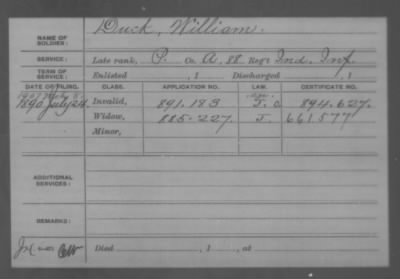 NAME OF SOLDIER: Duck, William.
SERVICE: Late rank, P. Co. A, 88 Reg't Ind. Inf.
TERM OF SERVICE: Enlisted , 1 Discharged , 1
DATE OF FILING. CLASS. APPLICATION NO. LAW. CERTIFICATE NO.
1890 July 24 Invalid, 891.183 J. C. 894.627.
Widow, 885.227. J. 661577
Minor,
ADDITIONAL SERVICES:
REMARKS:
Died , 1 , at